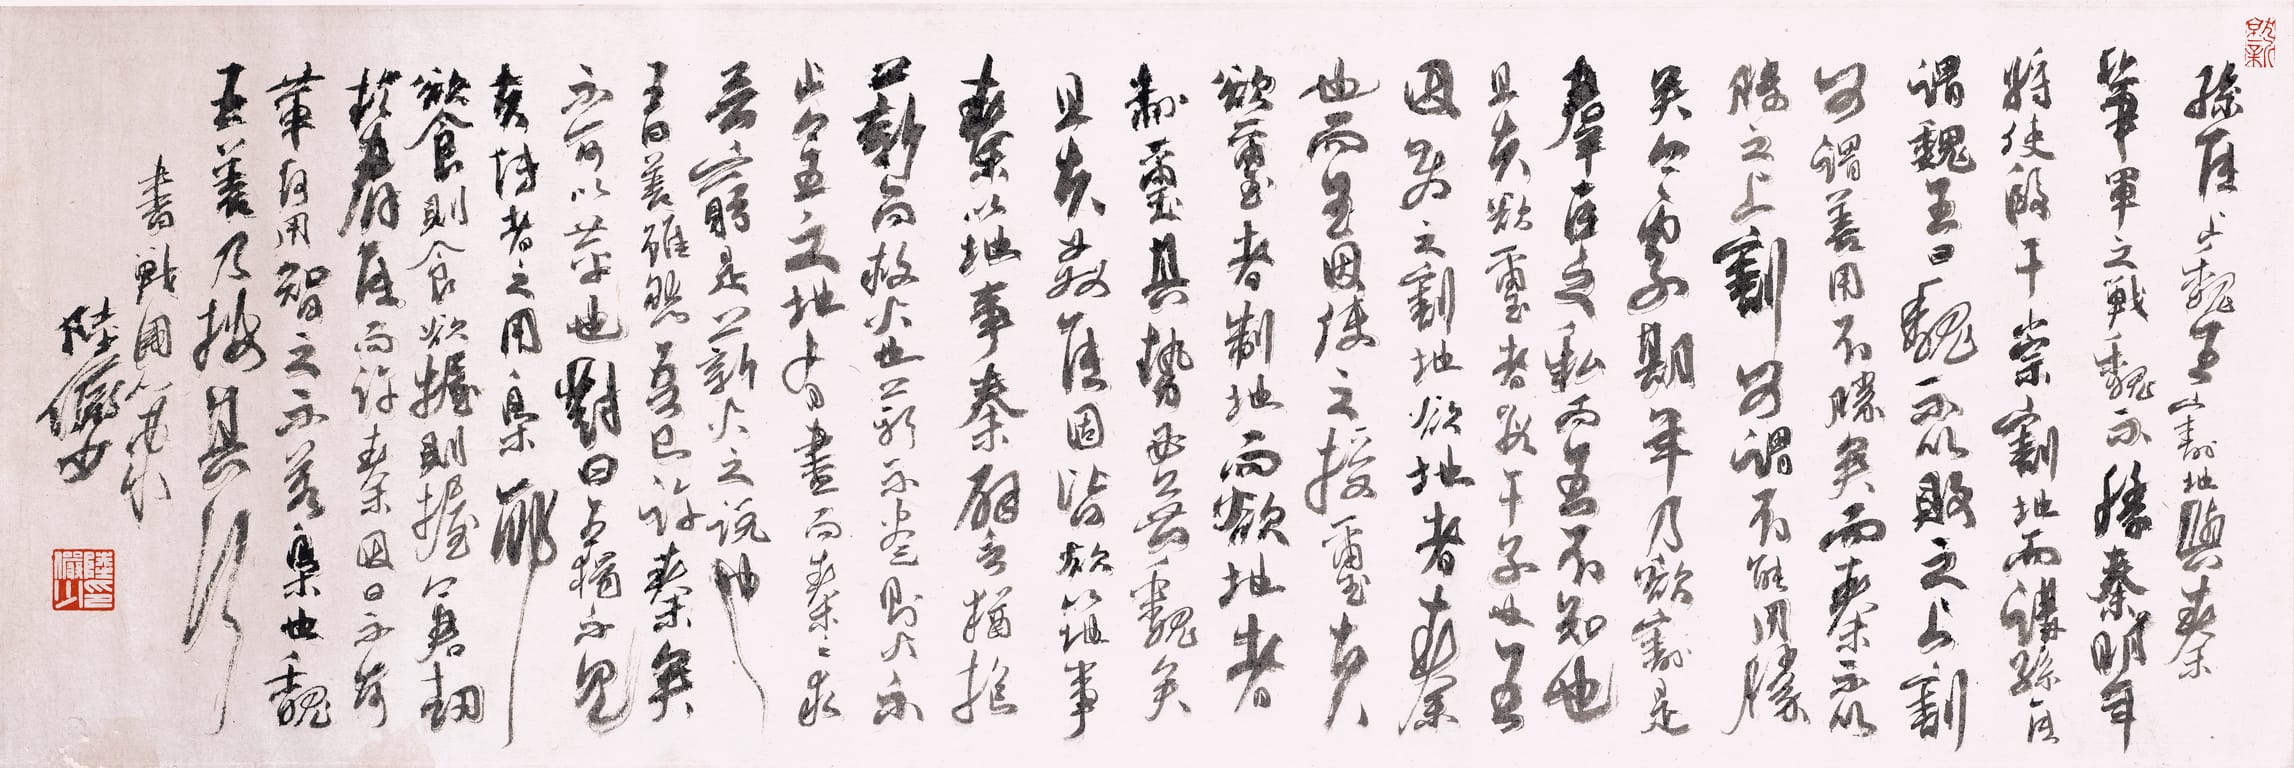 孫臣止魏王割地與秦
華軍之戰魏不勝秦明年
將使段干崇割地而講孫臣
謂魏王曰魏不以敗之上割
可謂善用不勝矣而秦不以
勝之上割可謂不能用勝
矣今處期年乃欲割是
羣臣之私而王不知也
且夫欲璽者段干子也王
因使之割地欲地者秦
也而王因使之授璽夫
欲璽者制地而欲地者
制璽其勢必無魏矣
且夫姦臣固皆欲以地事
秦以地事秦譬猶抱
薪而救火也薪不盡則火不
止今王之地有盡而秦之求
無窮是薪火之說也
王曰善雖然吾已許秦矣
不可以革也對曰王獨不見
夫博者之用梟邪
欲食則食欲握則握今君劫
於羣臣而許秦因曰不可
革何用智之不若梟也魏
王善乃按其行
書戰國策
陸儼少
陸儼少印
就新